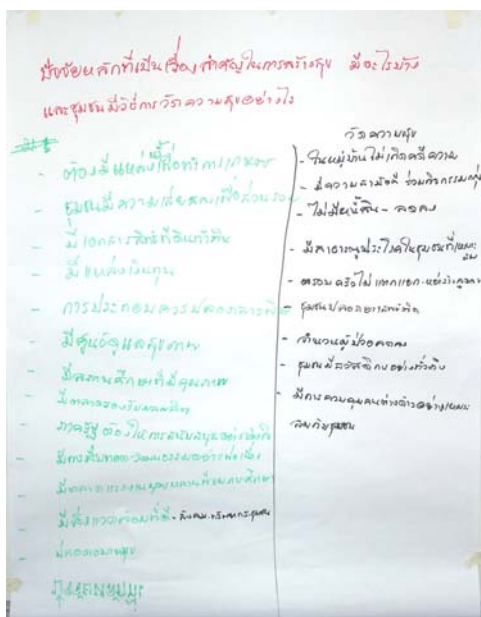 ปัจจัยหลักที่เป็นเรื่องสำคัญในการสร้างสุข มีอะไรบ้าง
และชุมชนมีวิธีการวัดความสุขอย่างไร
- ต้องมีแหล่งเพื่อทำการเกษตร
- ชุมชนมีความเสียสละเพื่อส่วนรวม
- มีเอกสารสิทธิ์ที่ดินทำกิน
- มีแหล่งเงินทุน
- การประกอบ
- มีศูนย์ดูแลสุขภาพ
- มีสถานศึกษาที่มีคุณภาพ
- มีตลาดรองรับผลผลิต
- ภาครัฐต้องให้การสนับสนุนอย่าง
- มีการสืบทอดวัฒนธรรมอย่างต่อเนื่อง
- มี
- มีสิ่งแวดล้อมที่ดี - สังคม
-
วัดความสุข
- ในหมู่บ้านไม่เกิดคดีความ
- มีความสามัคคี ร่วมกิจกรรม
- ไม่มีหนี้สิน - ลดลง
- มีสาธารณูประโภคในชุมชนที่
- ครอบครัวไม่แตกแยก - หย่าร้าง
- ชุมชนปลอดยาเสพติด
- จำนวนผู้ป่วยลดลง
- ชุมชนมีสวัสดิการอย่างทั่วถึง
- มีการควบคุมคนต่างด้าวอย่างเหมาะ
สมกับชุมชน